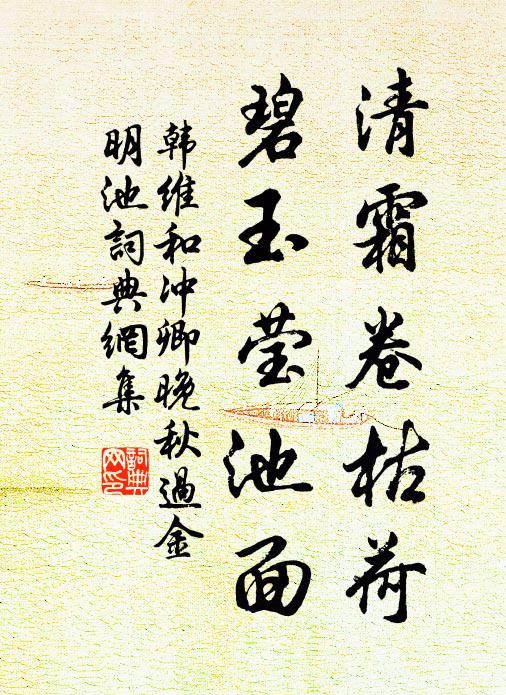 清霜卷枯荷
碧玉莹池面
韩维和冲卿晚秋過金
明池詞典網集
詞典網印